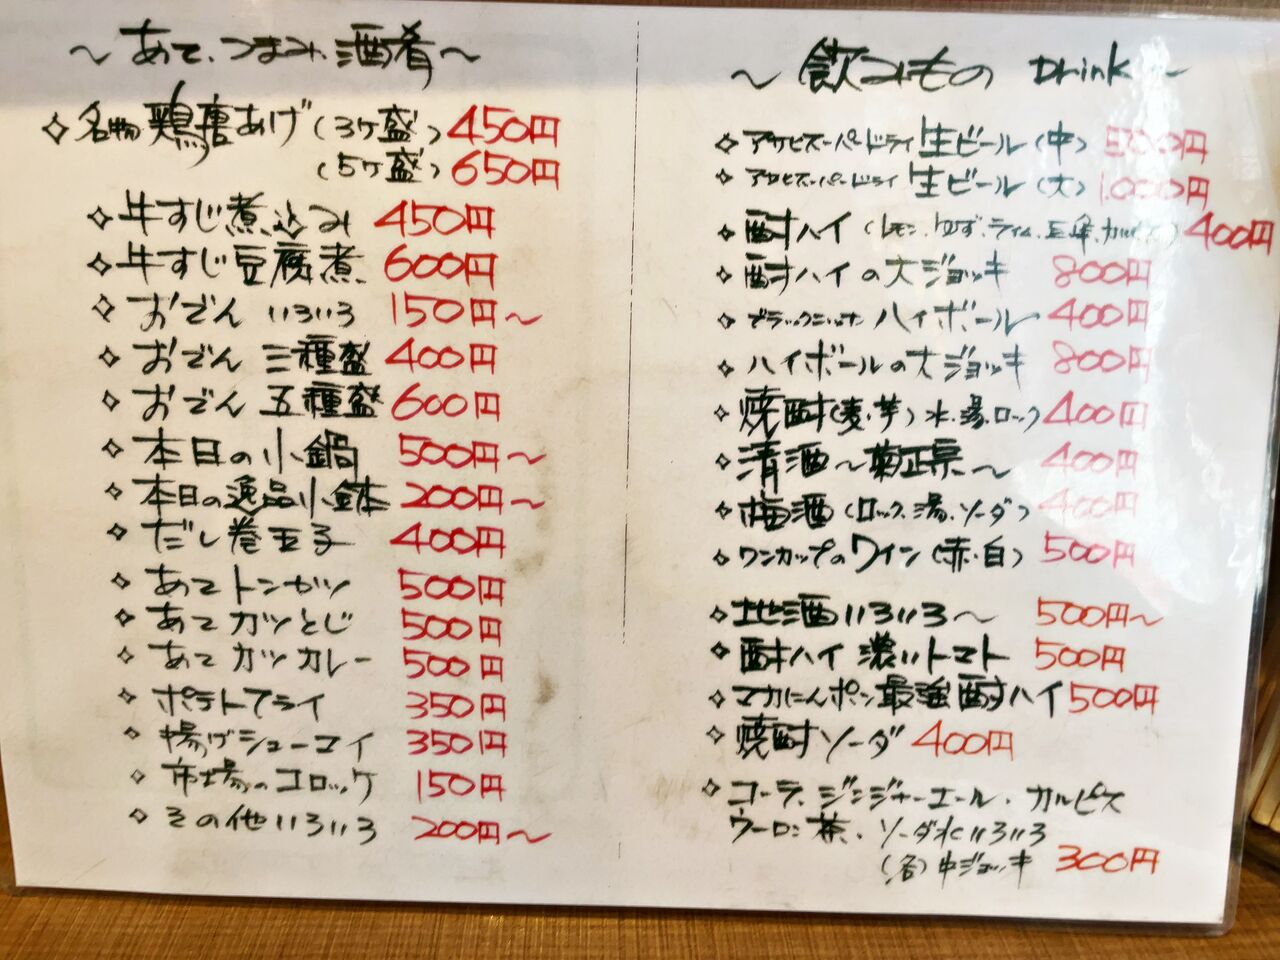 ～あて、つまみ、酒肴～
名物鶏唐あげ(3ケ盛)450円
(5ケ盛)650円
牛すじ煮込み 450円
牛すじ豆腐煮 600円
おでん いろいろ 150円～
おでん 三種盛 400円
おでん 五種盛 600円
本日の小鍋 500円～
本日の逸品小鉢 200円～
だし巻玉子 400円
あてトンカツ 500円
あてカツとじ 500円
あてカツカレー 500円
ポテトフライ 350円
揚げシューマイ 350円
市場のコロッケ 150円
その他いろいろ 200円～
～飲みもの Drink～
アサヒスーパードライ生ビール(中)500円
アサヒスーパードライ生ビール(大)1,000円
酎ハイ(レモン、ゆず、ライム、巨峰、カルピス)400円
酎ハイの大ジョッキ 800円
ブラックニッカ ハイボール 400円
ハイボールの大ジョッキ 800円
焼酎(麦・芋)水・湯・ロック 400円
清酒～菊正宗～ 400円
梅酒(ロック、湯、ソーダ)400円
ワンカップのワイン(赤・白)500円
地酒いろいろ～ 500円～
酎ハイ 濃いトマト 500円
マカにんポン最強酎ハイ 500円
焼酎ソーダ 400円
コーラ、ジンジャーエール、カルピス
ウーロン茶、ソーダ水いろいろ
(各)中ジョッキ 300円